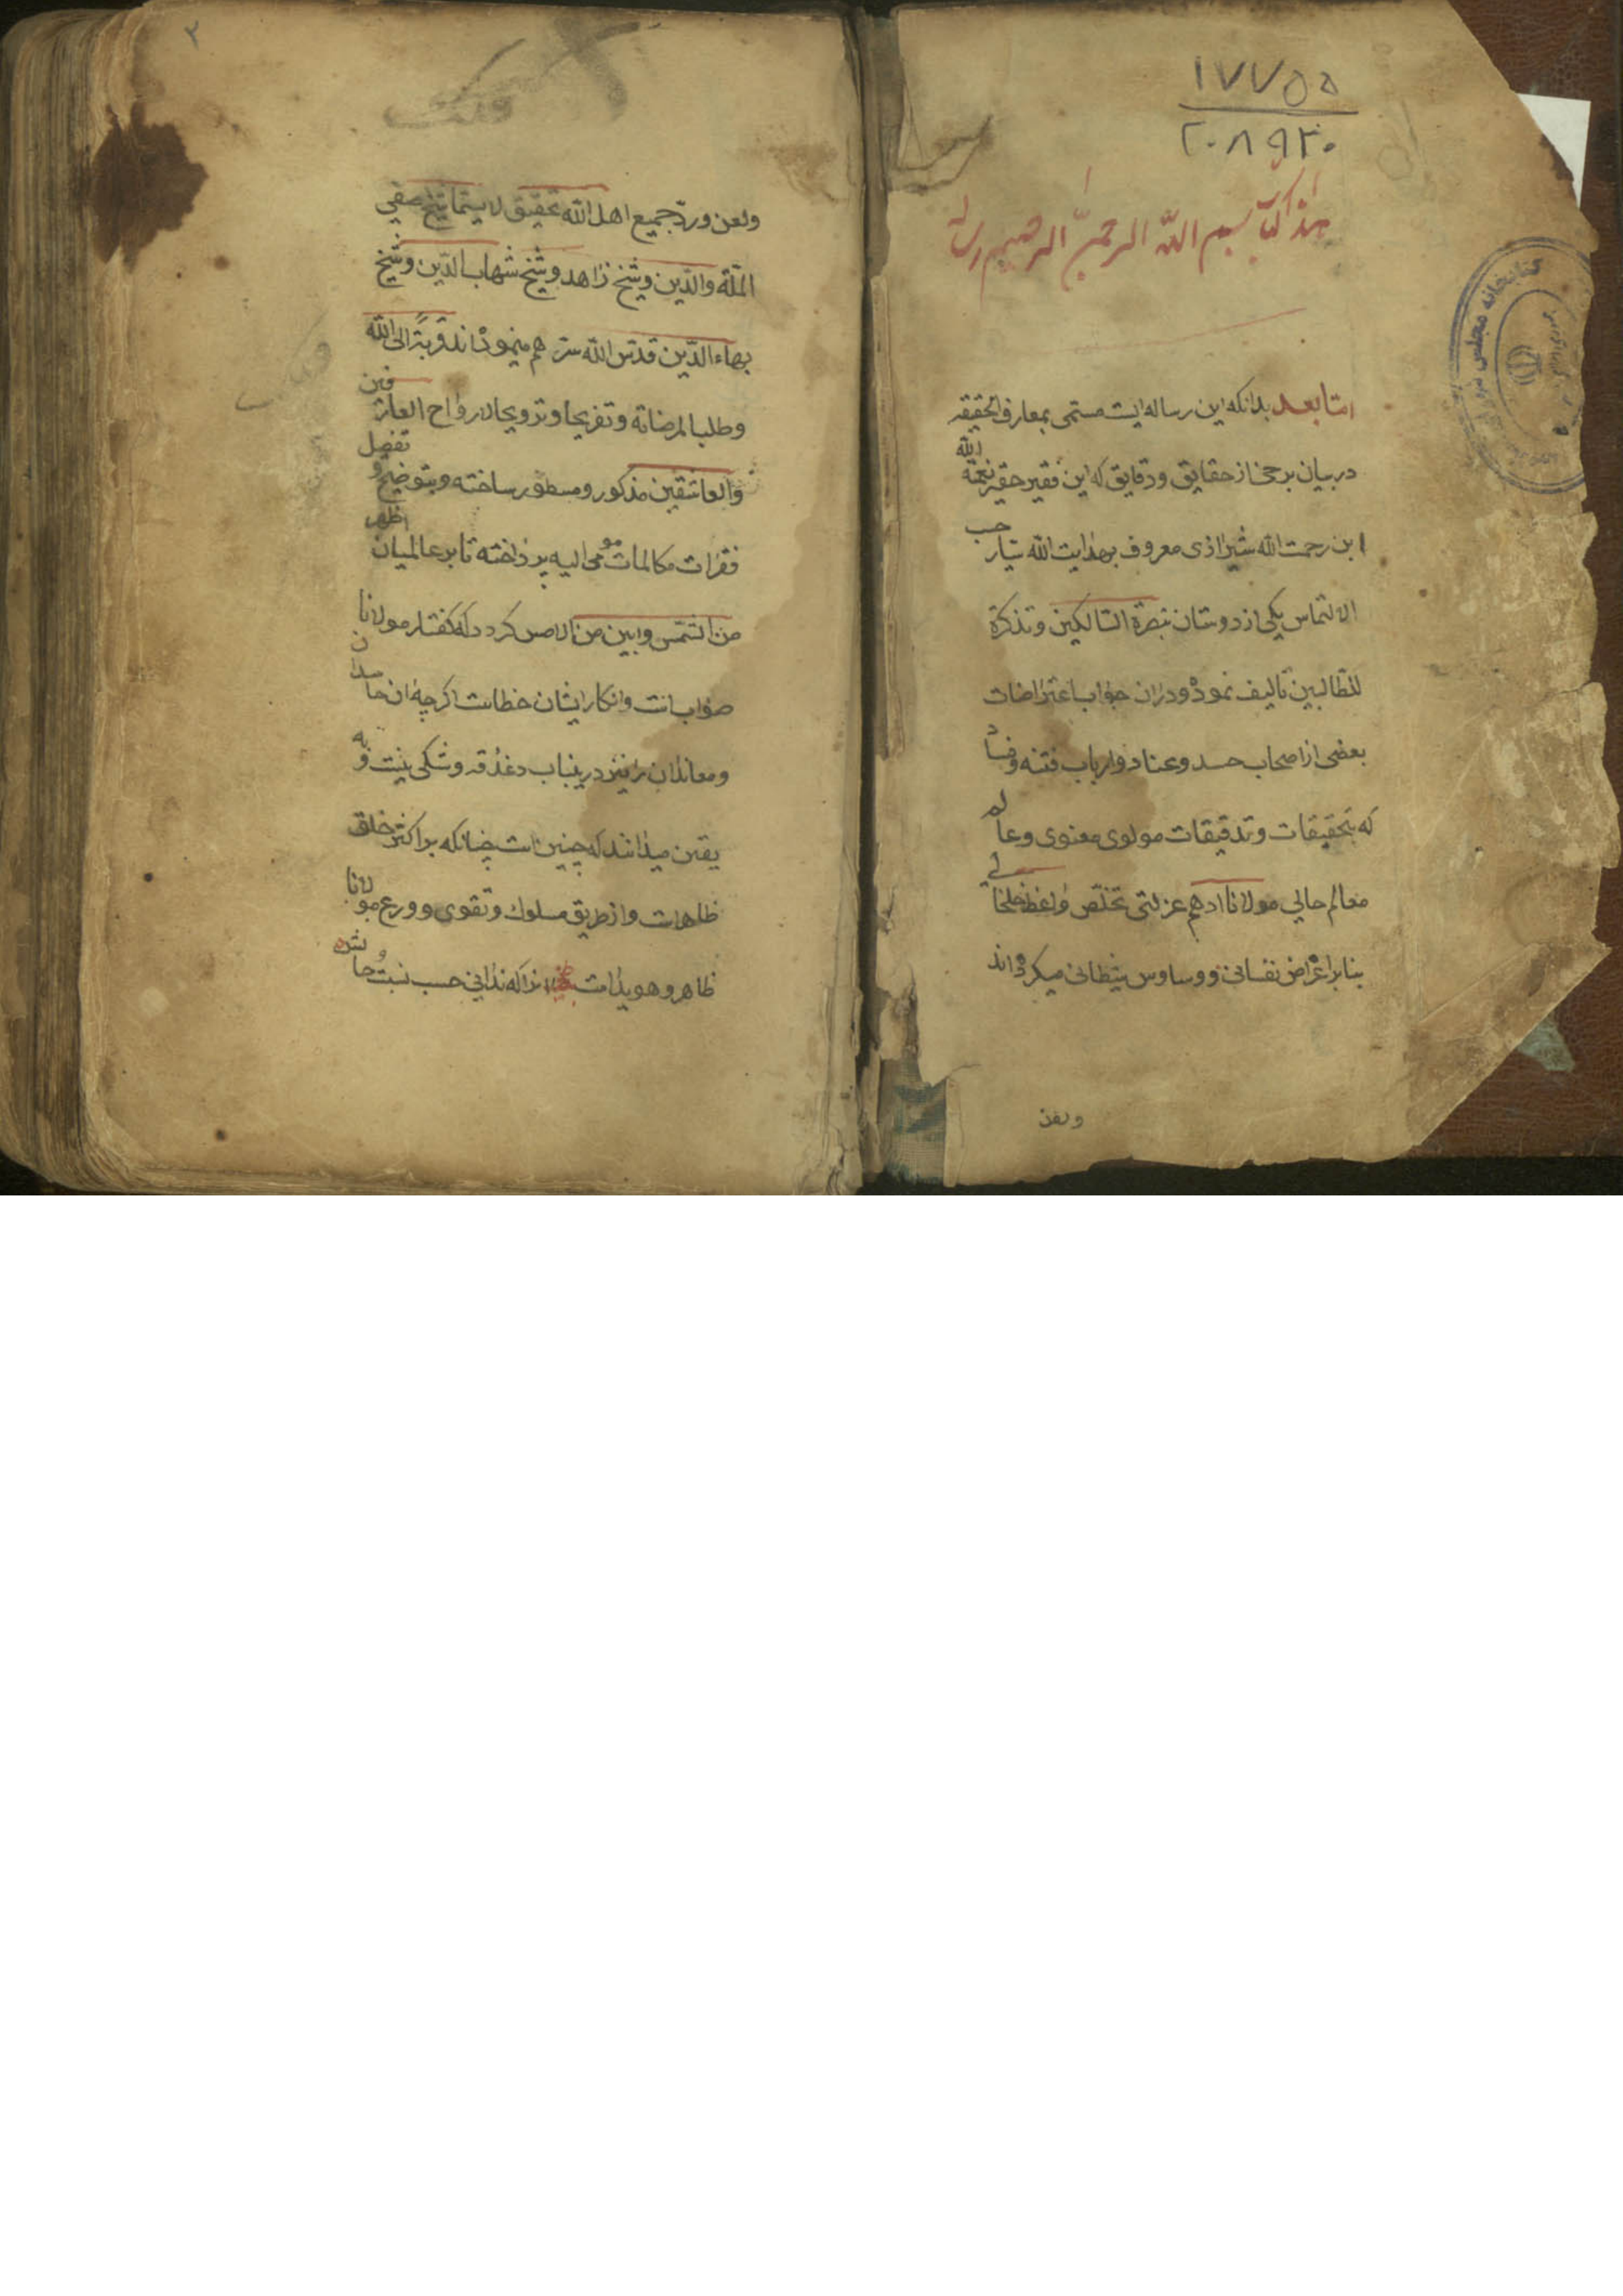 ۱۷۷۵۵
۲۰۸۹۲۰
هذا کتاب بسم الله الرحمن الرحیم
اما بعد بدانکه این رساله ایست مسمی بمعارف الحقیقه
در بیان برخی از حقایق و دقایق که این فقیر حقیر نعمة الله
ابن رحمت الله شیرازی معروف بهدایت الله حسب
الالتماس یکی از دوستان تبصرة السالکین و تذکرة
للطالبین تالیف نموده و در ان جواب اعتراضات
بعضی از اصحاب حسد و عناد و ارباب فتنه و فساد
که بتحقیقات و تدقیقات مولوی معنوی و عالم
معالم حالی مولانا ادهم عزلتی تخلص واعظ خلخالی
بنابر اغراض نفسانی و وساوس شیطانی میکرده اند
ولعن
۲
ولعن و رد جمیع اهل الله تحقیق لا سیما شیخ صفی
الملة والدین و شیخ زاهد و شیخ شهاب الدین و شیخ
بهاء الدین قدس الله سرهم مینموده اند قربة الی الله
و طلبا لمرضاته و تفریحا و ترویحا لارواح العارفین
والعاشقین مذکور و مسطور ساخته و بتوضیح و تفصیل
فقرات مکالمات مومی الیه پرداخته تا بر عالمیان اظهر
من الشمس وابین من الامس کردد که کفتار مولانا
صوابست و انکار ایشان خطاست اکرچه ان حاسدان
و معاندان را نیز درینباب دغدقه و شکی نیست و به
یقین میدانند که چنین است چنانکه بر اکثر خلق
ظاهرست و از طریق سلوک و تقوی و ورع مولانا
ظاهر و هویداست زیرا که ندانی حسب نسبت حاش